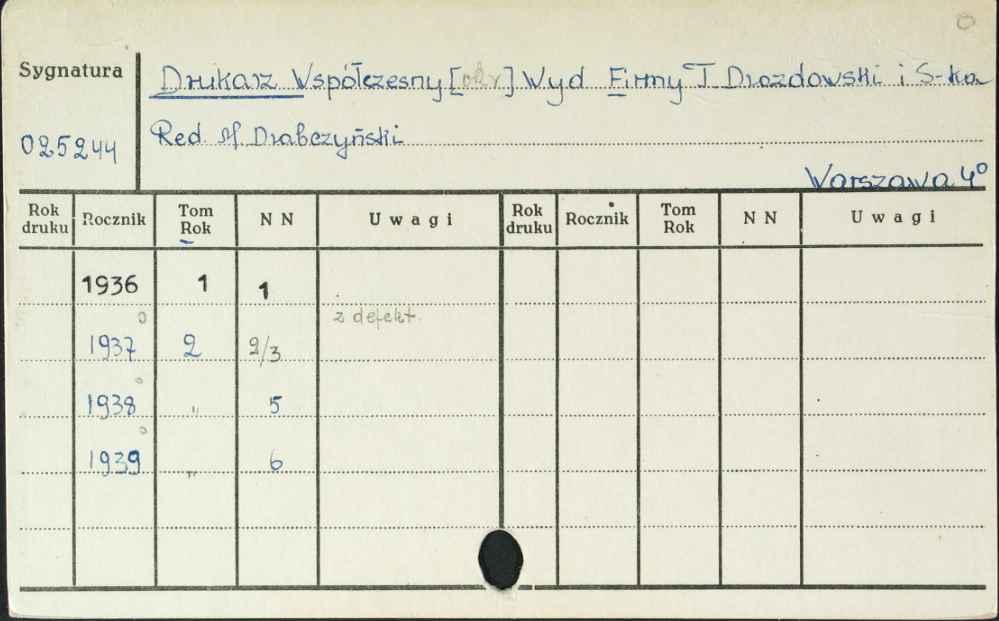 0
Sygnatura
Drukarz Współczesny [ ] Wyd Firmy T Drozdowski i S-ka
025244
Red. M. Drabczyński
Warszawa 4°
Rok druku Rocznik Tom Rok N N Uwagi Rok druku Rocznik Tom Rok N N Uwagi
1936 1 1
z defekt.
1937 2 2/3
1938 " 5
1939 " 6